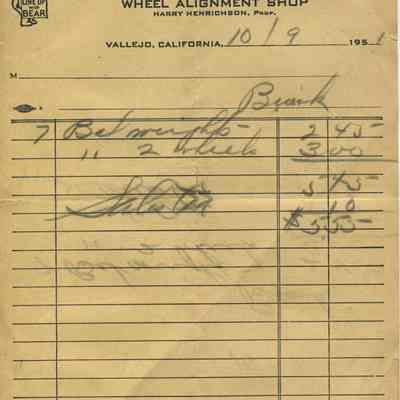 TUNE UP
BEAR
WHEEL ALIGNMENT SHOP
HARRY HENRICHSON, Prop.
VALLEJO, CALIFORNIA, 10/9 1951
M
Buick
7 Bal weights 2 45
" 2 wheels 3 00
5 45
Sales Tax 10
$ 5.55